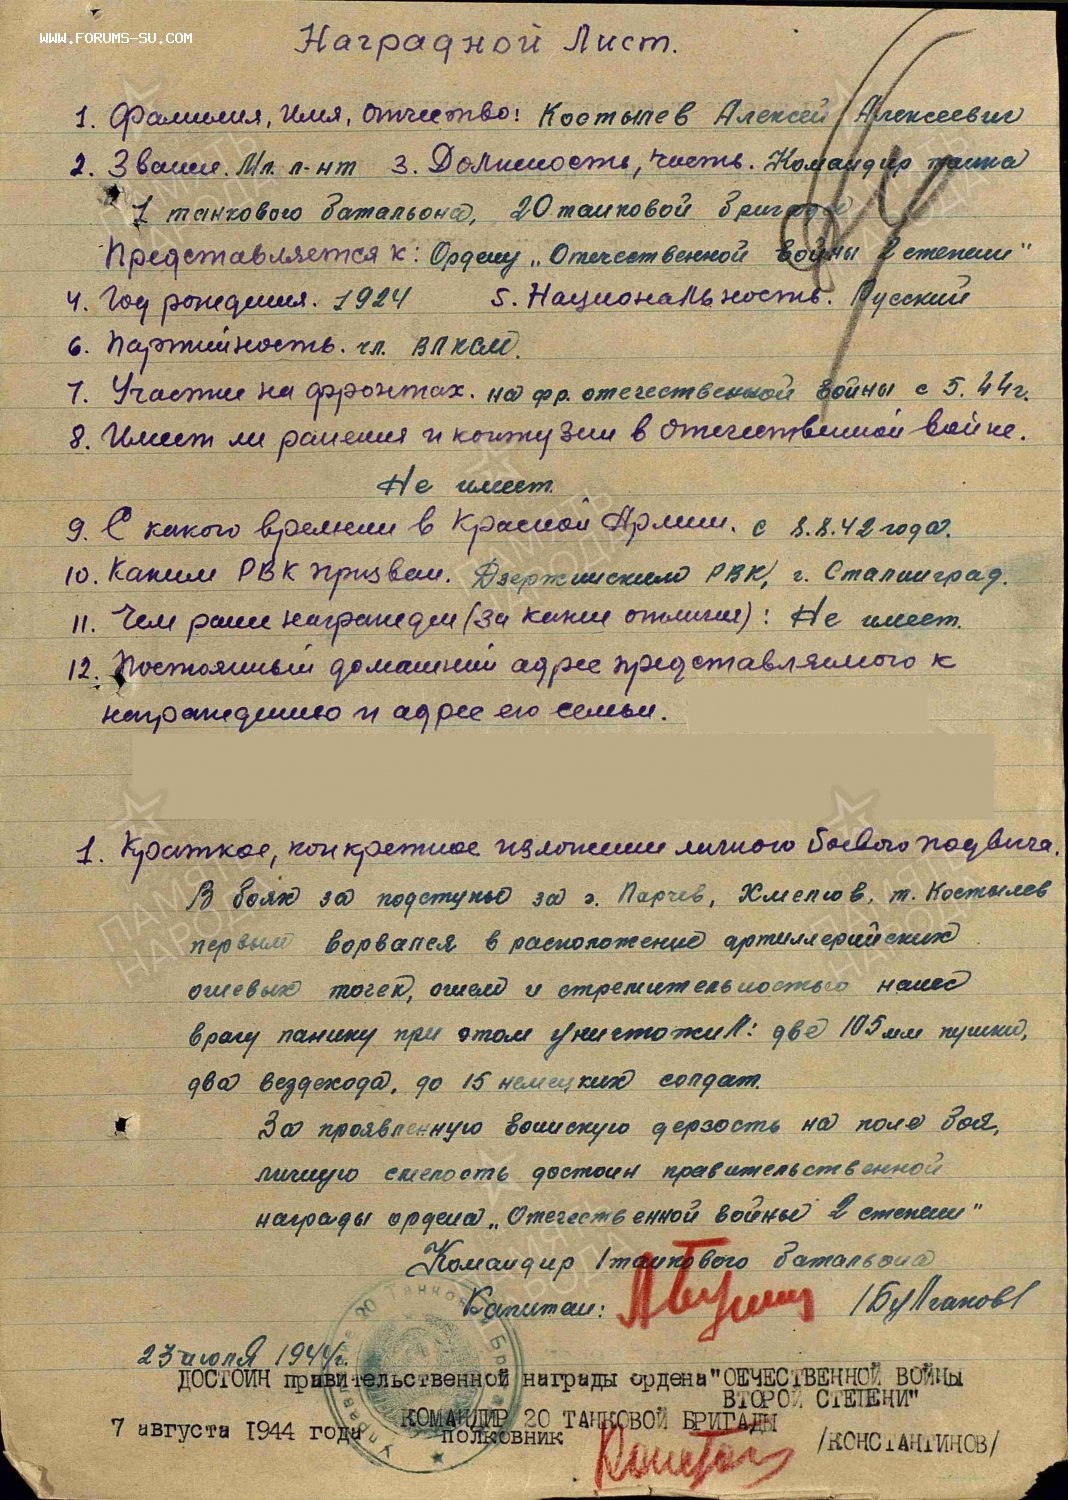 WWW.FORUMS-SU.COM
Наградной Лист.
1. Фамилия, имя, отчество: Костылев Алексей Алексеевич
2. Звание. Мл. л-нт 3. Должность, часть. Командир танка
1 танкового батальона, 20 танковой бригады
Представляется к: Ордену „Отечественной войны 2 степени"
4. Год рождения. 1924 5. Национальность. Русский
6. Партийность. чл. ВЛКСМ.
7. Участие на фронтах. на фр. отечественной войны с 5.44г.
8. Имеет ли ранения и контузии в отечественной войне.
Не имеет.
9. С какого времени в Красной Армии. с 8.8.42 года.
10. Каким РВК призван. Дзержинским РВК, г. Сталинград.
11. Чем ранее награжден (за какие отличия): Не имеет.
12. Постоянный домашний адрес представляемого к
награждению и адрес его семьи.
1. Краткое, конкретное изложение личного боевого подвига.
В боях за подступы за г. Парчев, Хмелюв, т. Костылев
первым ворвался в расположение артиллерийских
огневых точек, огнем и стремительностью нанес
врагу панику при этом уничтожил: две 105 мм пушки,
два вездехода, до 15 немецких солдат.
За проявленную воинскую дерзость на поле боя,
личную смелость достоин правительственной
награды ордена „Отечественной войны 2 степени"
Командир 1 танкового батальона
Капитан: /Булгаков/
23 июля 1944г.
ДОСТОИН правительственной награды ордена "ОЕЧЕСТВЕННОЙ ВОЙНЫ
ВТОРОЙ СТЕПЕНИ"
КОМАНДИР 20 ТАНКОВОЙ БРИГАДЫ
7 августа 1944 года полковник /КОНСТАНТИНОВ/